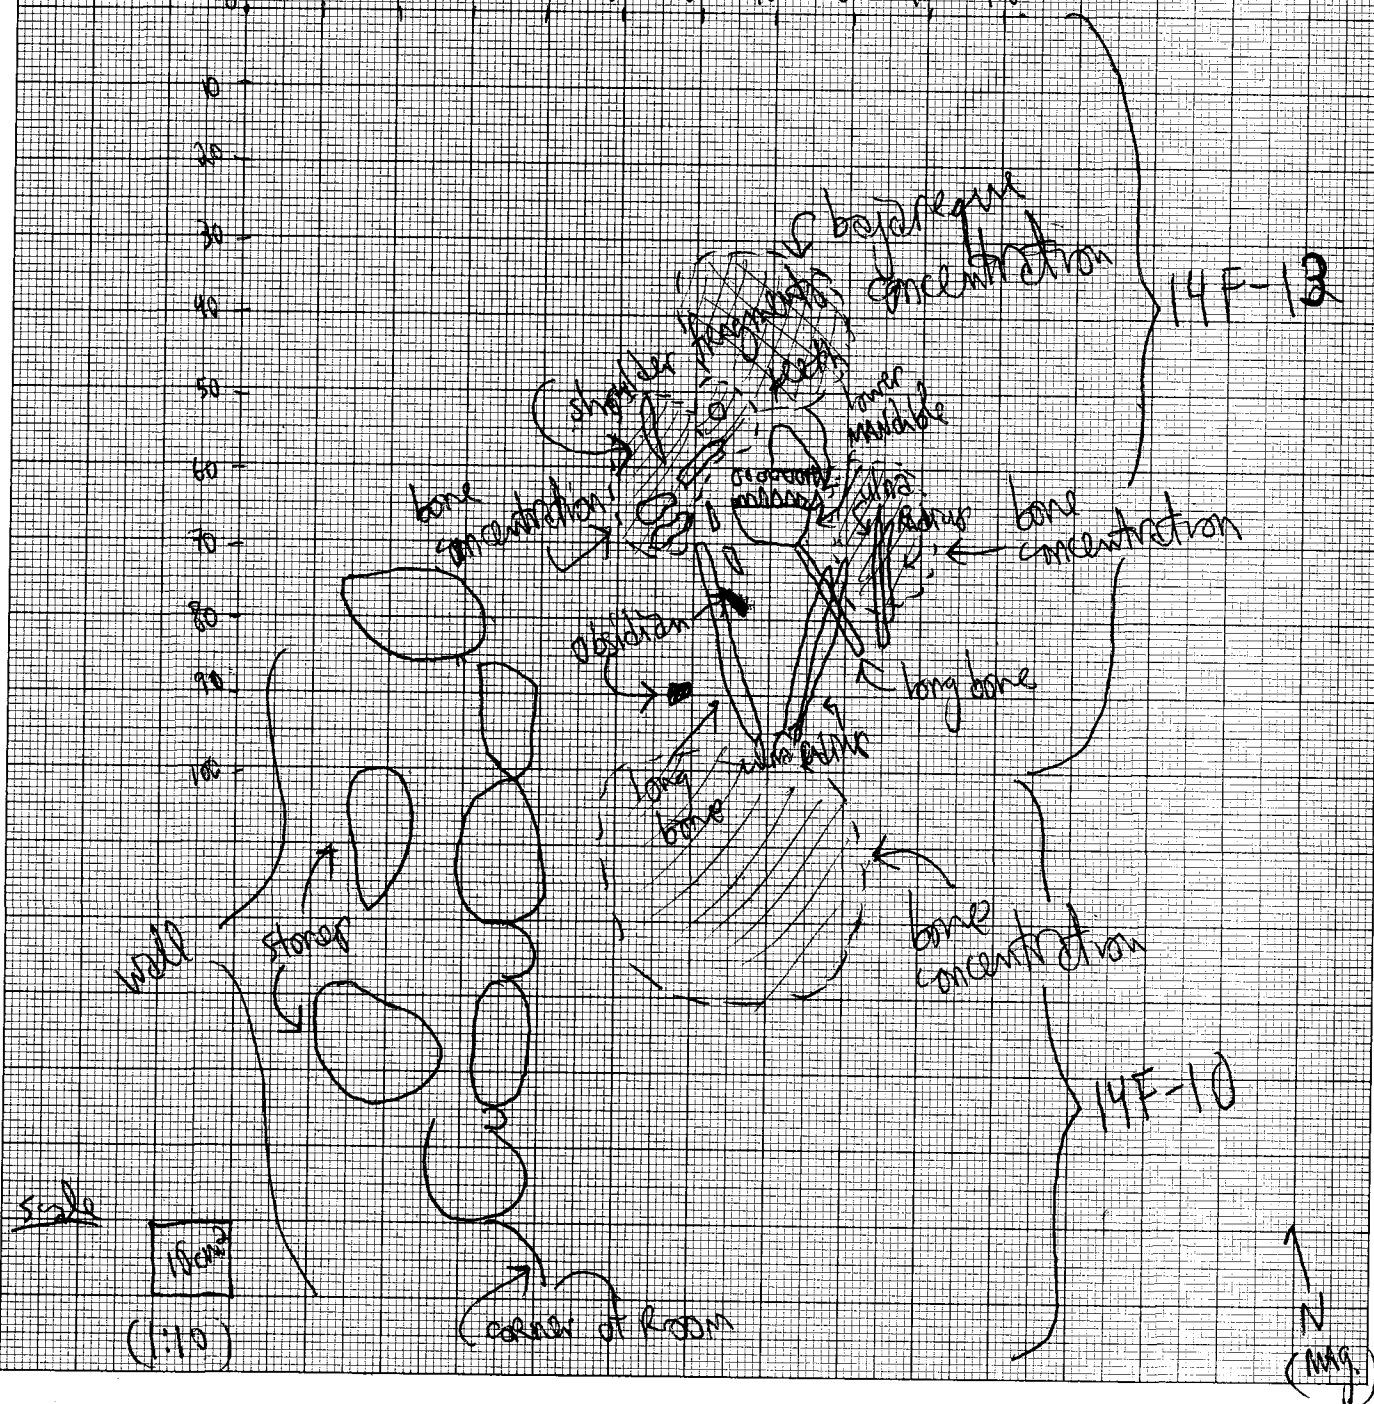 10
20
30
40
50
60
70
80
90
100
bajareque
concentration
14F-13
fragments
teeth
shoulder
lower
mandible
ulna
radius
bone
concentration
bone
concentration
obsidian
long bone
long
bone
ulna radius
bone
concentration
stones
wall
14F-10
scale
10cm²
(1:10)
corner of Room
N
(Mag.)